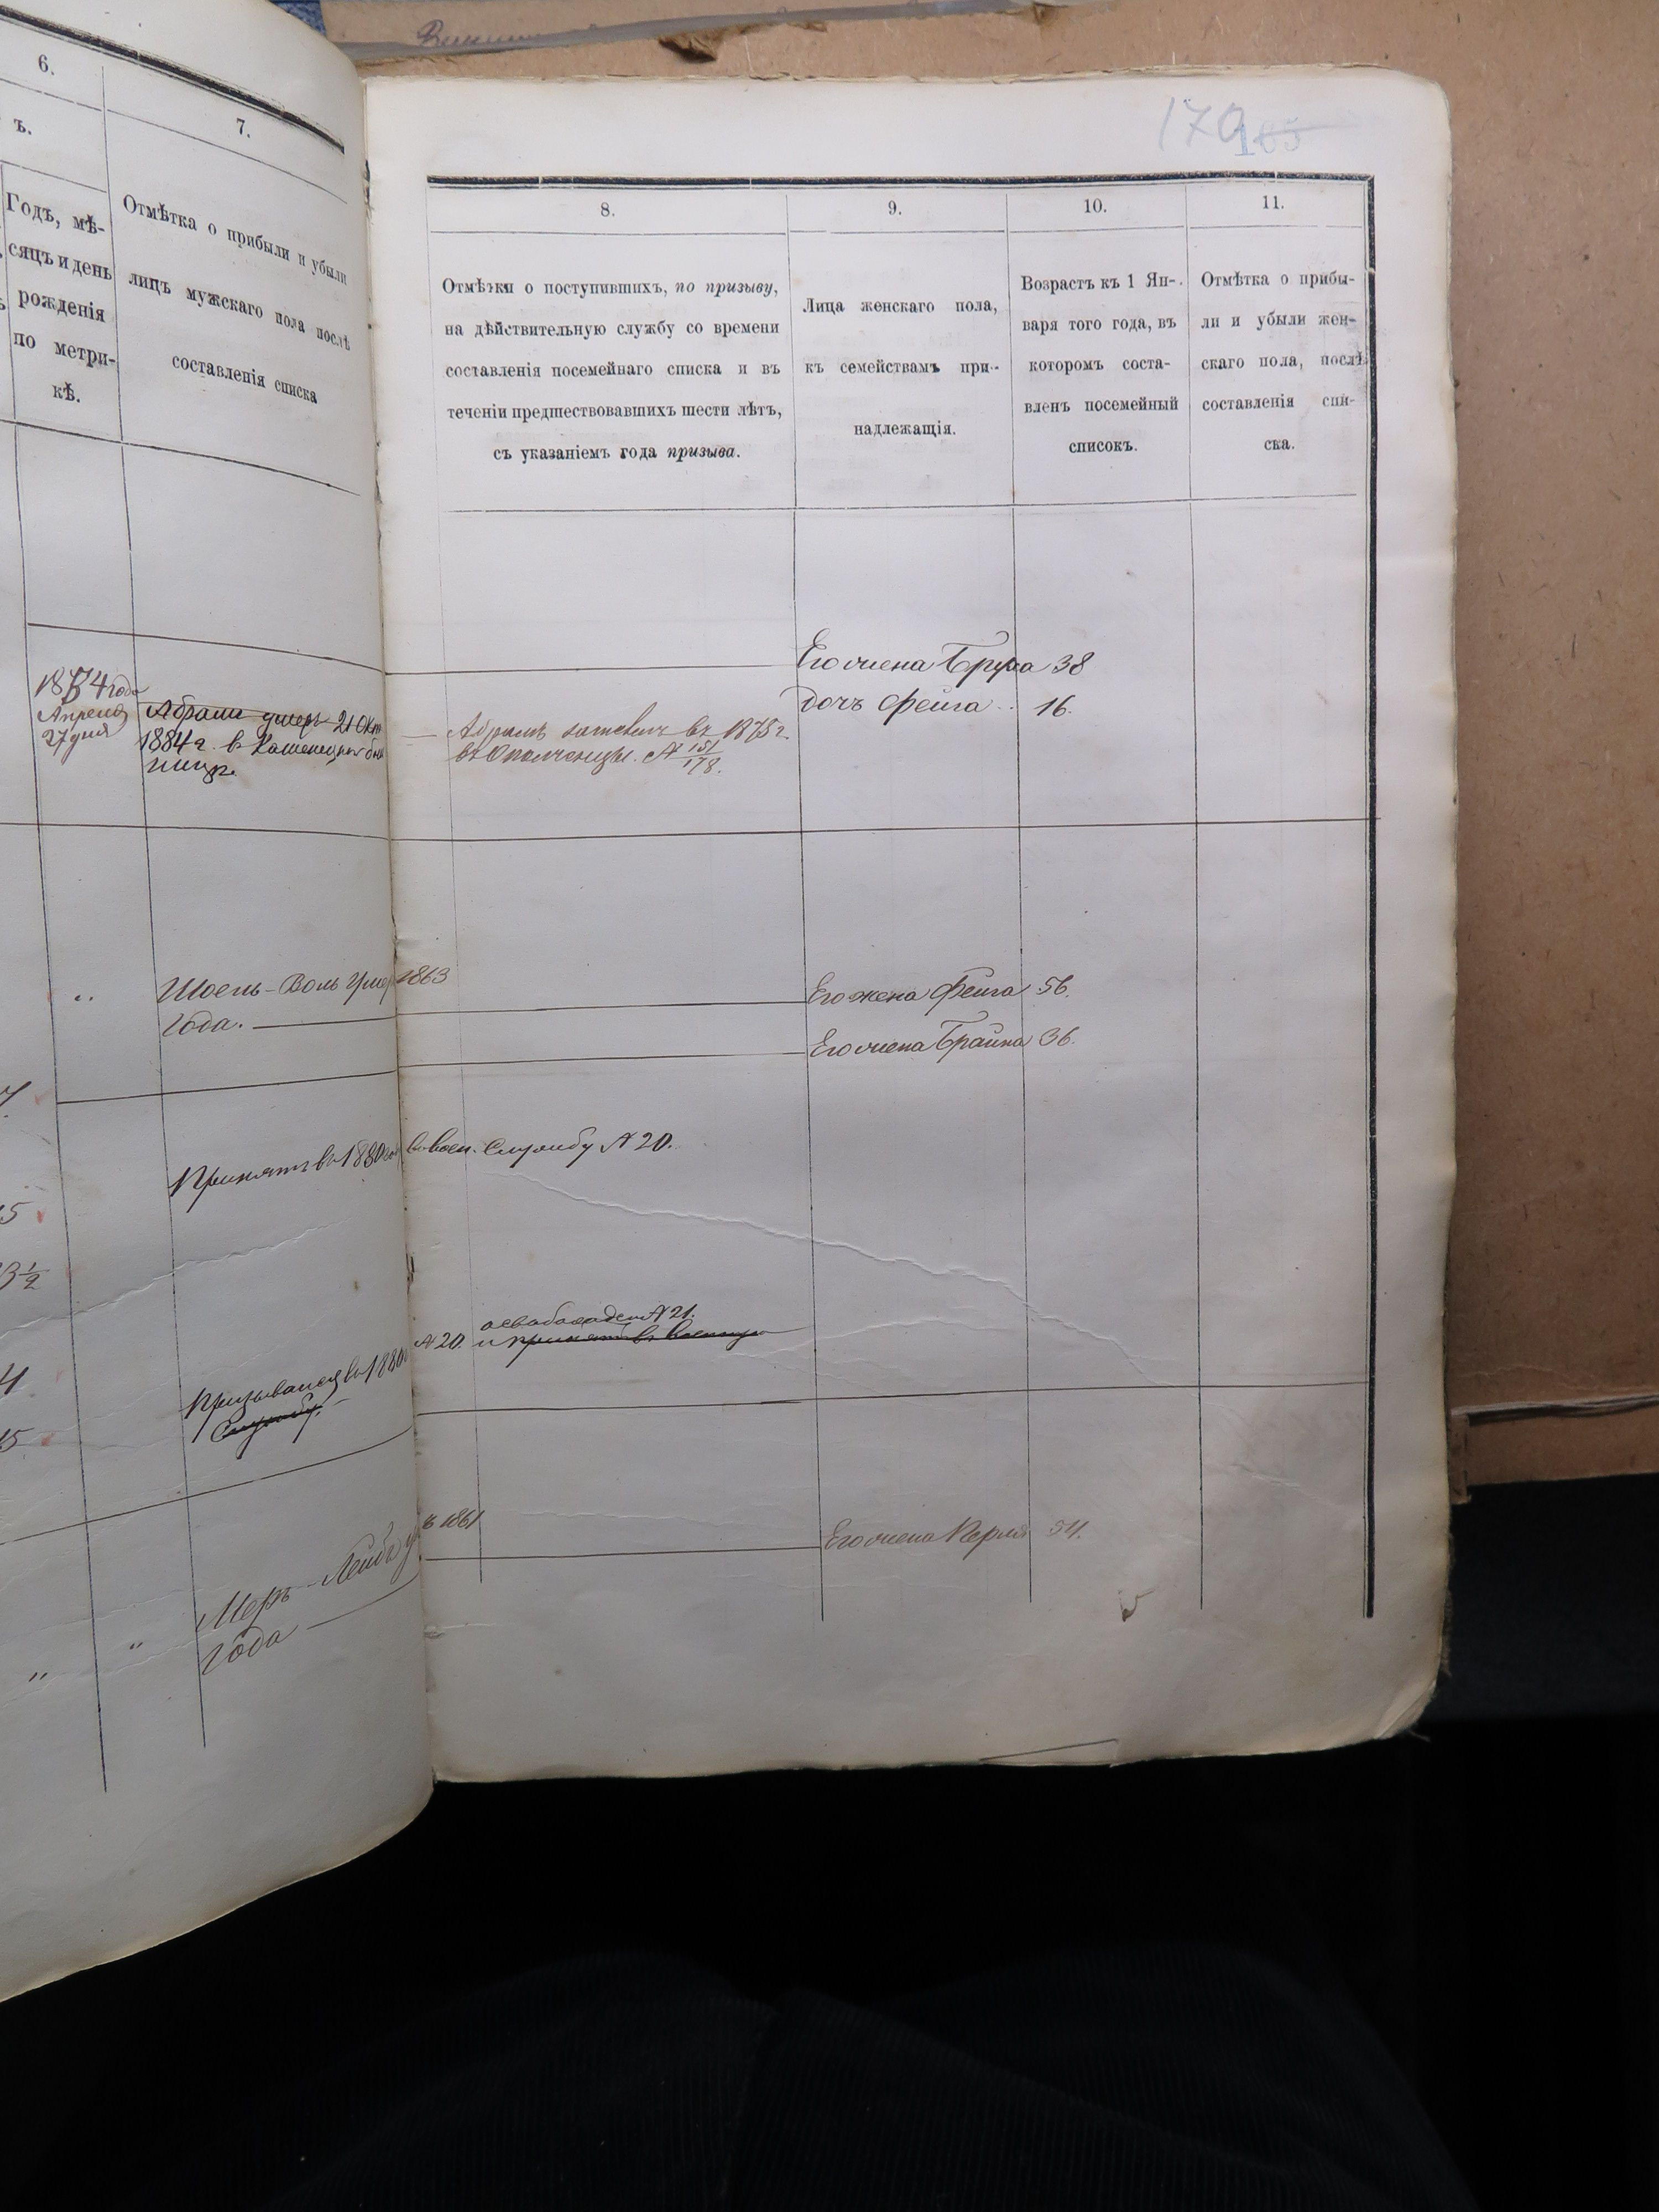 6.
ъ.
Годъ, мѣ-
сяцъ и день
рожденія
по метри-
кѣ.
7.
Отмѣтка о прибыли и убыли
лицъ мужскаго пола послѣ
составленія списка
170
165
8.
Отмѣтки о поступившихъ, по призыву,
на дѣйствительную службу со времени
составленія посемейнаго списка и въ
теченіи предшествовавшихъ шести лѣтъ,
съ указаніемъ года призыва.
9.
Лица женскаго пола,
къ семействамъ при-
надлежащія.
10.
Возрастъ къ 1 Ян-
варя того года, въ
которомъ соста-
вленъ посемейный
списокъ.
11.
Отмѣтка о прибы-
ли и убыли жен-
скаго пола, послѣ
составленія спи-
ска.
Его жена Бруха 38
дочь Фейга 16.
1854 года
Апреля
27 дня
Абрамъ умеръ 21 Окт
1884 г. в
Абрамъ зачисленъ въ 1875 г.
въ Ополченцы. № 151/178.
Шоель-Воль Умер 1863
года.
Его жена Фейга 56.
Его жена Брайна 36.
7.
Принятъ въ 1880 год въ воен. Службу № 20.
15
3½
Призывался въ 1880 № 20. освобожден № 21.
и принят въ военную
Службу.
4
15
Меръ-Лейба у ъ 1861
года
Его жена Перля 54.